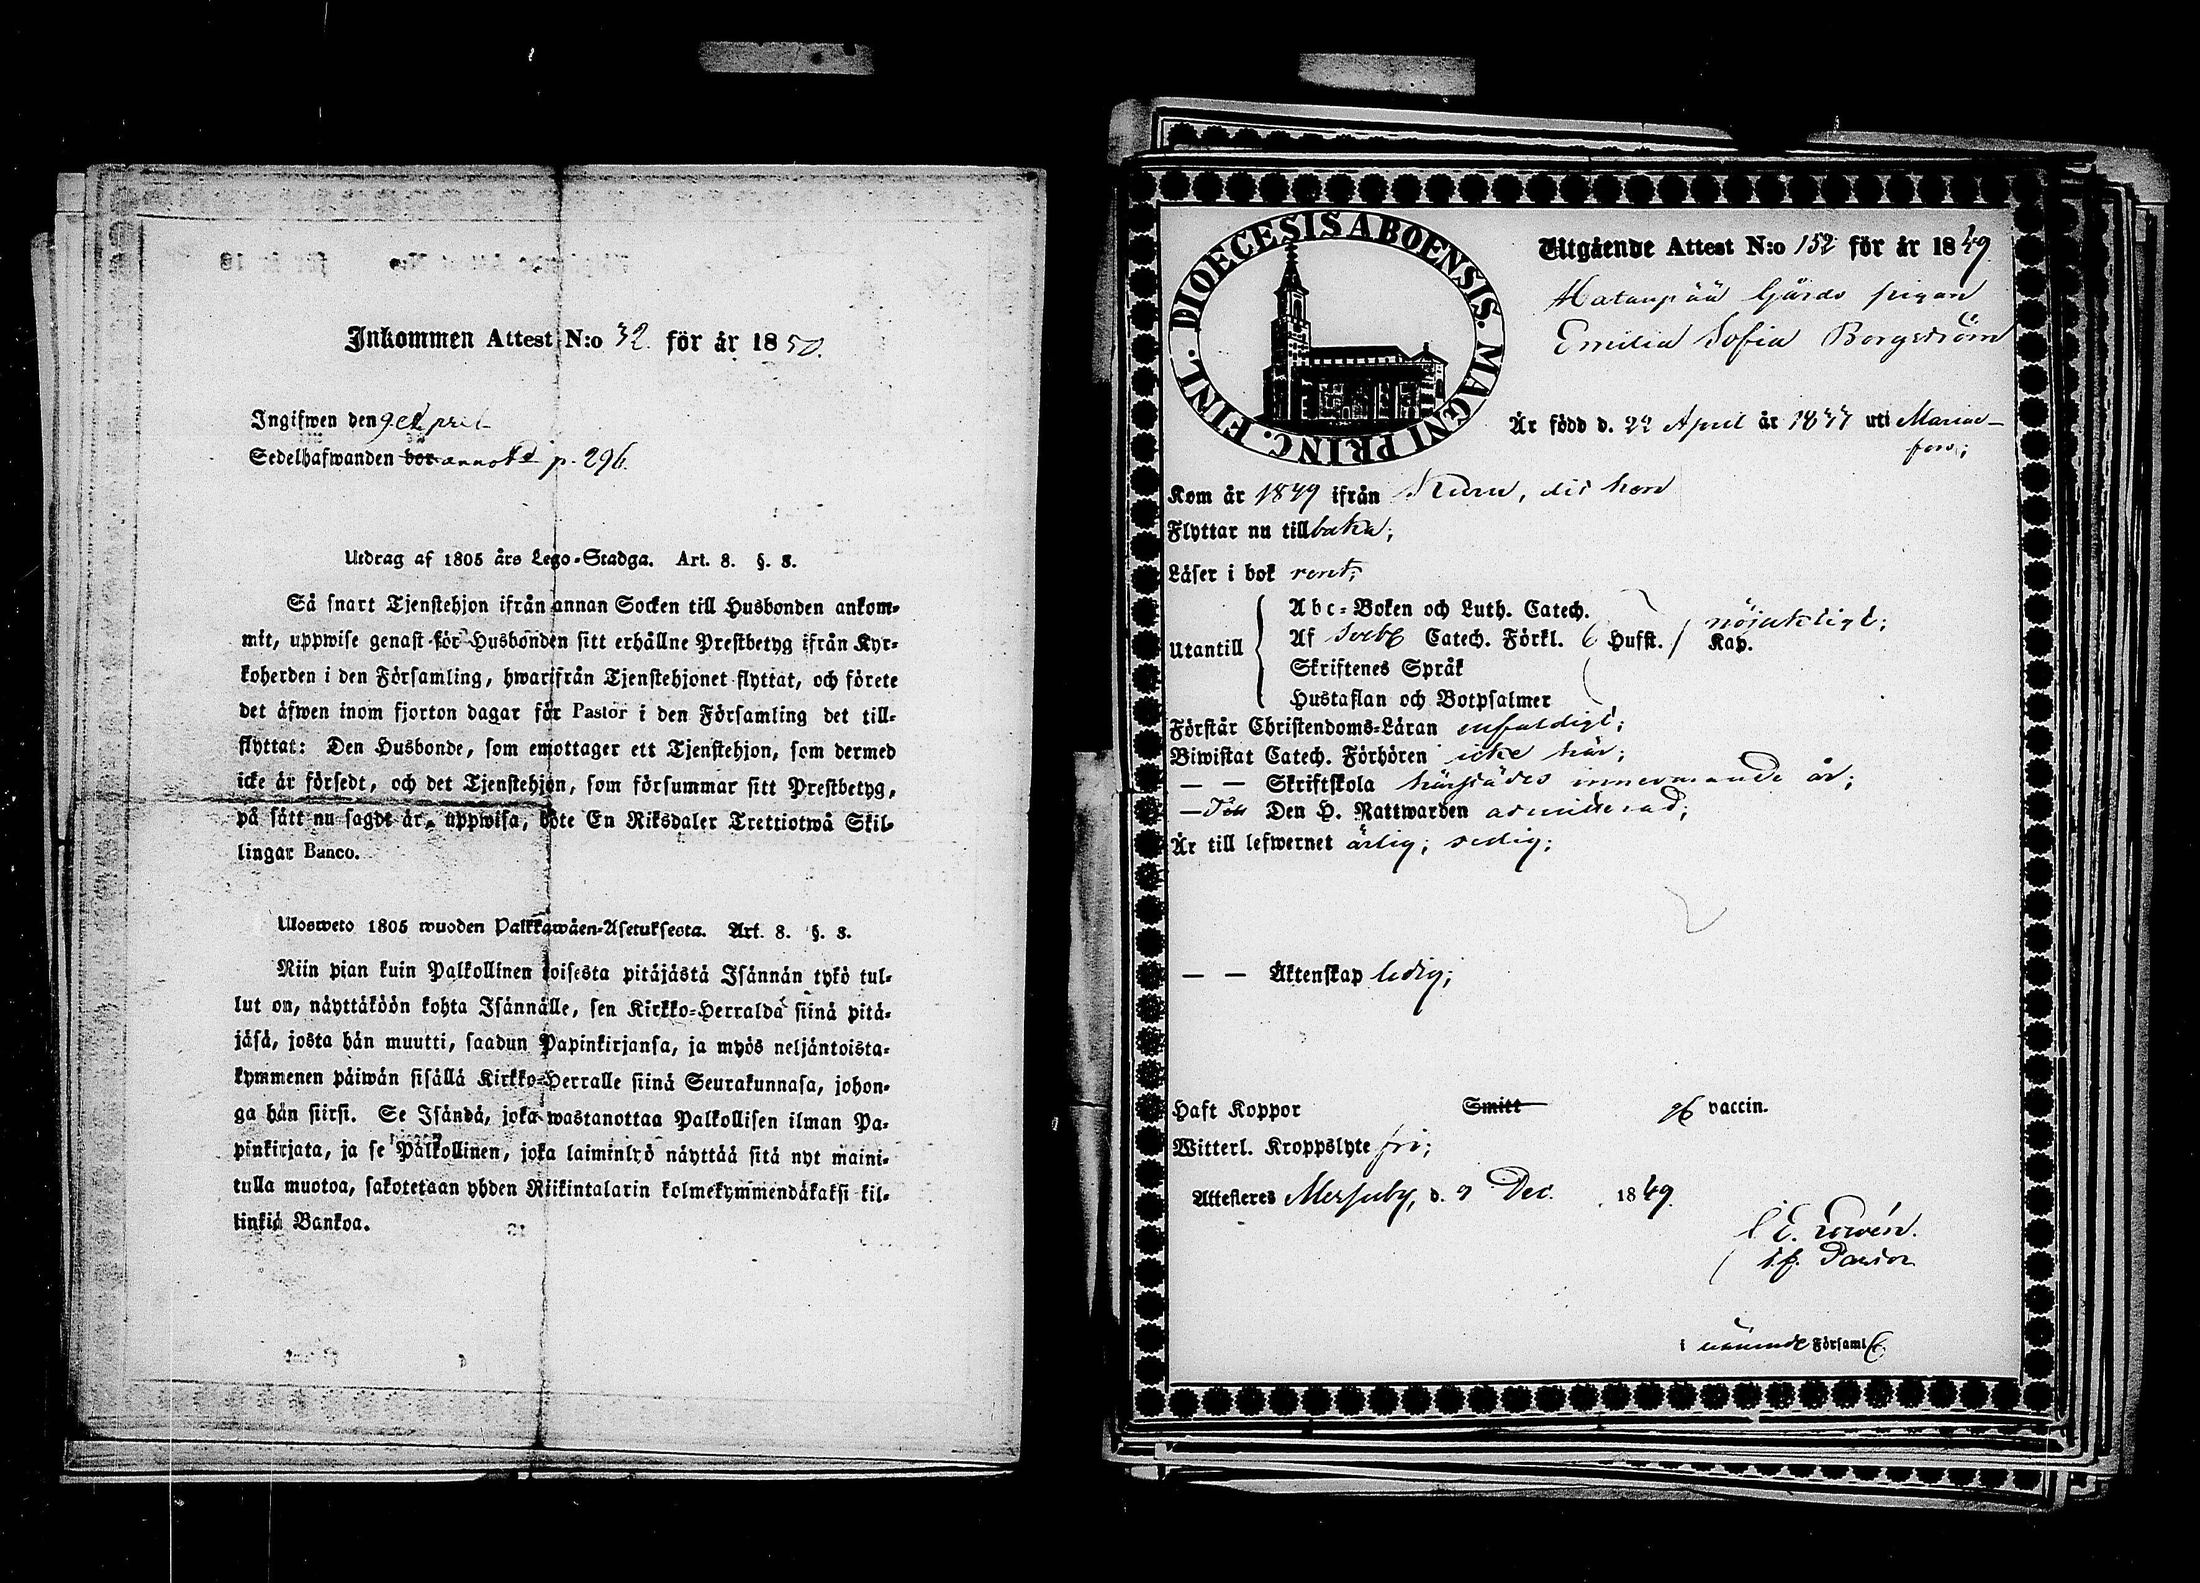 Inkommen Attest N:o 32. för år 1850.
Ingifwen den 9 April
Sedelhafwanden bor annot d p. 296.
Utdrag af 1805 års Lego-Stadga. Art. 8. §. 8.
Så snart Tjenstehjon ifrån annan Socken till Husbonden ankom-
mit, uppwise genast för Husbonden sitt erhållne Prestbetyg ifrån Kyr-
koherden i den Församling, hwarifrån Tjenstehjonet flyttat, och förete
det äfwen inom fjorton dagar för Pastor i den Församling det till-
flyttat: Den Husbonde, som emottager ett Tjenstehjon, som dermed
icke är försedt, och det Tjenstehjon, som försummar sitt Prestbetyg,
på sätt nu sagdt är, uppwisa, böte En Riksdaler Trettiotwå Skil-
lingar Banco.
Ulosweto 1805 wuoden Palkkawäen-Asetuksesta. Art. 8. §. 8.
Niin pian kuin Palkollinen toisesta pitäjästä Isännän tykö tul-
lut on, näyttäköön kohta Isännälle, sen Kirkko-Herralda siinä pitä-
jäsä, josta hän muutti, saadun Papinkirjansa, ja myös neljäntoista-
kymmenen päiwän sisällä Kirkko-Herralle siinä Seurakunnasa, johon-
ga hän siirsi. Se Isändä, joka wastanottaa Palkollisen ilman Pa-
pinkirjata, ja se Palkollinen, joka laiminlyö näyttää sitä nyt maini-
tulla muotoa, sakotetaan yhden Riikintalarin kolmekymmendäkaksi kil-
linkiä Bankoa.
DIOECESIS ABOENSIS. MAGNI PRINC. FINL.
Utgående Attest N:o 152 för år 1849.
Hatanpää Gårds pigan
Emilia Sofia Borgström
Är född d. 22 April år 18 uti Marie-
fors;
Kom år 1849 ifrån Kuru, dit hon
Flyttar nu tillbaka;
Läser i bok rent;
Utantill
Abc-Boken och Luth. Catech.
Af Sveb. Catech. Förkl. 6 Hufst. Kap. nöjaktigt;
Skriftenes Språk
Hustaflan och Botpsalmer
Förstår Christendoms-Läran enfaldigt;
Biwistat Catech. Förhören icke här;
— — Skriftskola härstädes innevarande år;
— Till Den H. Nattwarden admitterad;
Är till lefwernet ärlig; sedig;
— — Äktenskap ledig;
Haft Koppor Smitt vaccin.
Witterl. Kroppslyte fri;
Attesteres Messuby, d. 9 Dec. 1849.
C E. Lovén.
v. Pastor
i nämnde Församl.